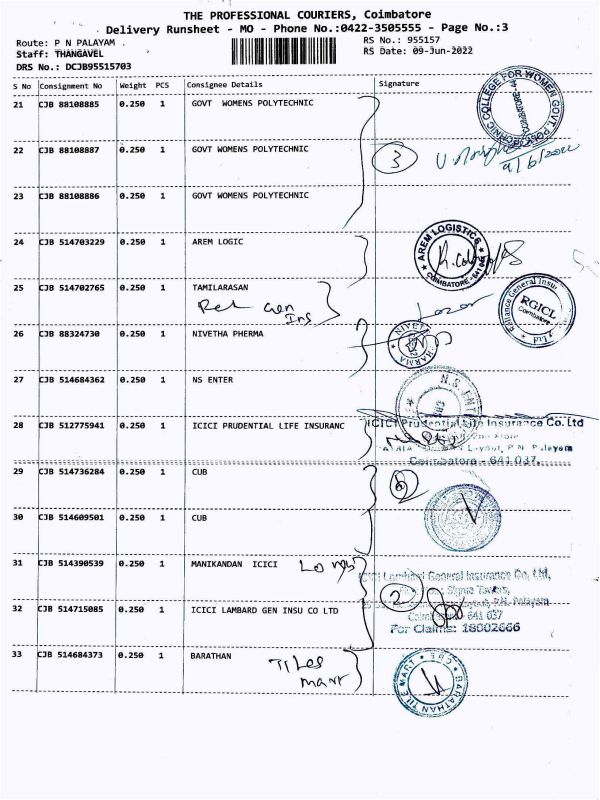 THE PROFESSIONAL COURIERS, Coimbatore
Delivery Runsheet - MO - Phone No.:0422-3505555 - Page No.:3
Route: P N PALAYAM RS No.: 955157
Staff: THANGAVEL RS Date: 09-Jun-2022
DRS No.: DCJB95515703
S No Consignment No Weight PCS Consignee Details Signature
21 CJB 88108885 0.250 1 GOVT WOMENS POLYTECHNIC
22 CJB 88108887 0.250 1 GOVT WOMENS POLYTECHNIC 3
23 CJB 88108886 0.250 1 GOVT WOMENS POLYTECHNIC
24 CJB 514703229 0.250 1 AREM LOGIC
AREM LOGISTICS
COIMBATORE
25 CJB 514702765 0.250 1 TAMILARASAN
Rel Gen
Ins
Reliance General Insur
RGICL
Coimbatore
26 CJB 88324730 0.250 1 NIVETHA PHERMA
27 CJB 514684362 0.250 1 NS ENTER
28 CJB 512775941 0.250 1 ICICI PRUDENTIAL LIFE INSURANC
ICICI Prudential Life Insurance Co. Ltd
Layout, P.N. Palayam
Coimbatore - 641 037.
29 CJB 514736284 0.250 1 CUB
30 CJB 514609501 0.250 1 CUB
31 CJB 514390539 0.250 1 MANIKANDAN ICICI
ICICI Lombard General Insurance Co. Ltd,
2
641 037
For Claims: 18002666
32 CJB 514715085 0.250 1 ICICI LAMBARD GEN INSU CO LTD
33 CJB 514684373 0.250 1 BARATHAN
Tiles
mart
BARATHAN TILE MART
CBE